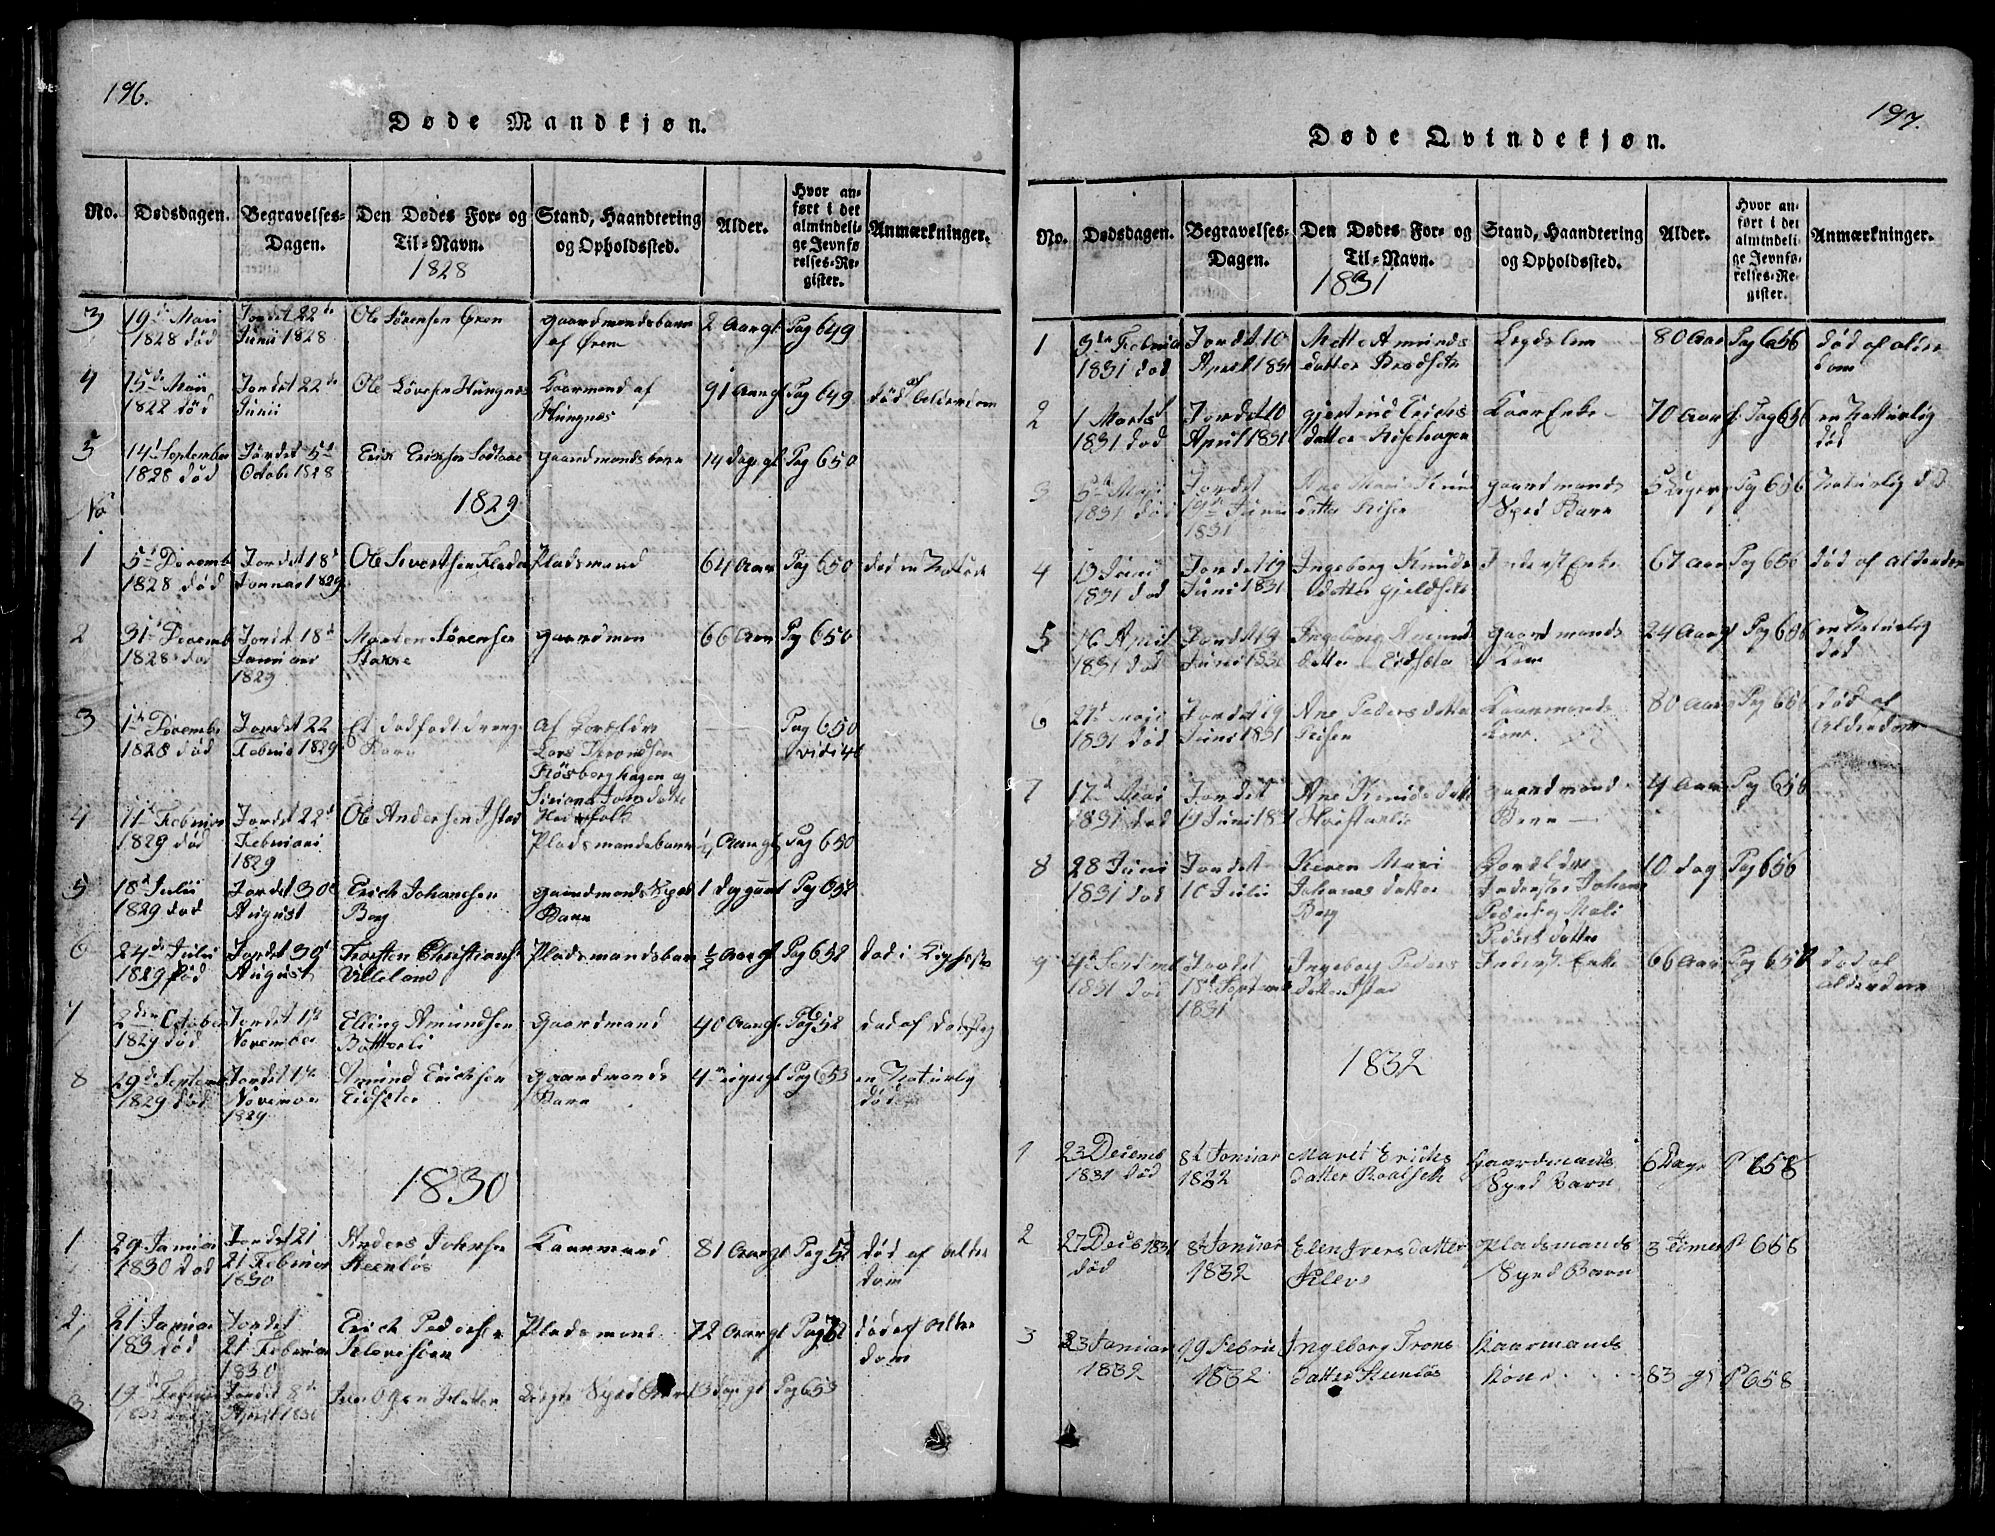 196.
Døde Mandkjøn.
No.
Dødsdagen.
Begravelses-
Dagen.
Den Dødes For- og
Til-Navn.
1828
Stand, Haandtering
og Opholdssted.
Alder.
Hvor an-
ført i det
almindeli-
ge Jevnfø
relses-Re-
gister.
Anmærkninger.
3
19de Maii
1828 død
Jordet 22de
Junii 1828
Ole Sørensen Ørem
gaardmandsbarn
af Ørem
2 Aargl
Pag 649
4
15de Maii
1822 død
Jordet 22de
Junii
Ole Hungnes
Kaarmand af
Hungnes
91 Aargl
Pag 649
død af alderdom
5
14d September
1828 død
Jordet 5d
Octobr 1828
Erik Eriksen
gaardmandsbarn
14 dag gl
Pag 650
1829
No
1
5d Decemb
1828 død
Jordet 18d
Januar 1829
Ole Sivertsen
Pladsmand
64 Aar
Pag 650
2
31d Decemb
1828 død
Jordet 18d
Januari
1829
Morten Sørensen
gaardman
66 Aar
Pag 650
3
1de Decembr
1828 død
Jordet 22
Februa 1829
Et dødfødt drenge
Barn
Af Forældre
Lars
og
— —
Pag 650
4
11d Februar
1829 død
Jordet 22d
Februari
1829
Ole Andersen Istad
Pladsmandsbarn
1/4 Aargl
Pag 650
5
18d Julii
1829 død
Jordet 30d
August
Erich Johansen
Berg
gaardmands Sped
Barn
1 dag gaml
Pag 652
6
24de Julii
1829 død
Jordet 30d
August
Torsten Christians
Pladsmandsbarn
1/2 Aargl
Pag 652
død i Kighoste
7
2den October
1829 død
Jordet 1st
November
Elling Amundsen
gaardmand
40 Aargl
Pag 652
død af
8
29de Septemb
1829 død
Jordet 1st
November
1829
Amund Ericksen
Eidsæter
gaardmands
Barn
4
Pag 653
en Naturlig
død
1830
1
29 Januar
1830 død
Jordet 21
21 Februar
1830
Anders Johnsen
Steenløs
Kaarmand
81 Aargl
Pag 52
død af alder
dom
2,
21 Januar
183 død
Jordet
21 Februar
1830
Erich Pedersen
Pladsmand
72 Aargl
Pag
død af alder
dom
3
19d Februar
Jordet 8de
April 1830
Sped Barn
13 dag gl
Pag 653
197.
Døde Qvindekjøn.
No.
Dødsdagen.
Begravelses-
Dagen.
Den Dødes For- og
Til-Navn.
1831
Stand, Haandtering
og Opholdssted.
Alder.
Hvor an-
ført i det
almindeli-
ge Jevnfø-
relses-Re-
gister.
Anmærkninger.
1
3de Februa
1831 død
Jordet 10
April 1831
Mette Amunds
datter Brodsets
Legdslem
80 Aar
Pag 656
død af alder
dom
2
1 Marts
1831 død
Jordet 10
April 1831
gjertrud Erichs
datter Risehagen
Kaar Enke
70 Aar
Pag 656
en Natturlig
død
3
5d Maji
1831 død
Jordet
19d Juni
1831
Ane Marie Knud
datter Risen
gaardmands
Sped Barn
5 Uger
Pag 656
Naturlig død
4
13 Juni
1831 død
Jordet 19
Juni 1831
Ingeborg Knuds
datter gjeldsets
Inderst Enke
67 Aar
Pag 656
død af alderdom
5
16 April
1831 død
Jordet 19
Juni 1831
Ingeborg Amund
datter Eidsæter
gaardmands
Kone
24 Aargl
Pag 656
en Naturlig
død
6
21d Maji
1831 død
Jordet 19
Juni 1831
Ane Peders datter
Risen
Kaarmands
Kone.
80 Aar
Pag 656
død af
Alderdom
7
17d Mai
1831 død
Jordet
19 Juni 1831
Ane Knuds datter
gaardmand
Barn —
4 Aar
Pag 656
8
28 Juni
1831 død
Jordet
10 Julii
Karen Mari
Johanes datter
Berg
Forældre
Inderster Johan
Peders og Mali
Peders datter
10 dag
Pag 656
9
4d Septembr
1831 død
Jordet
18d September
1831
Ingeborg Peders
datter Istad
Inderst Enke
66 Aar
Pag 657
død af
alderdom
1832
1
23 Decemb
1831 død
8d Januar
1832
Maret Erichs
datter Roalseth
Gaardmands
Sped Barn
6 Dage
P 658
2
27 Decb 1831
død
8d Januar
1832
Elen Ivers datter
Pladsmands
Sped Barn
3 Timer
P 658
3
23 Januar
1832
19 Febru
1832
Ingeborg Trons
datter Steenløs
Kaarmands
Kone . . .
83 gl
P 658